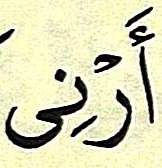 أَرْنِى